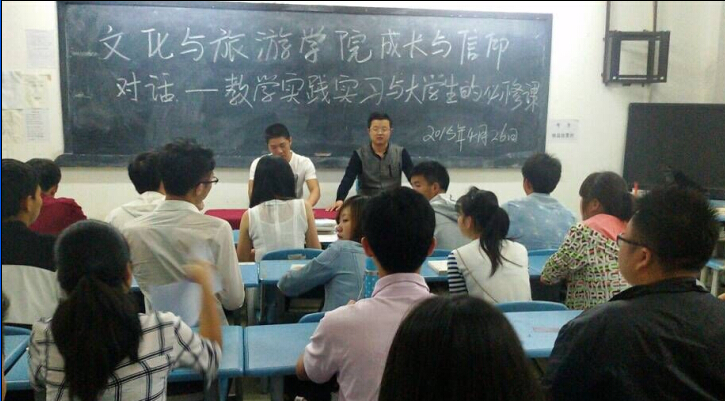 文化与旅游学院成长与信仰
对话—教学实践实习与大学生的必修课
2015年4月26日